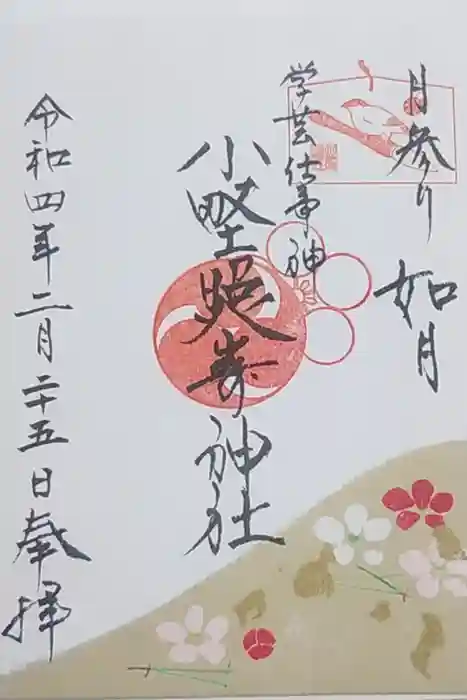 月参り 如月
学芸仕事神
小野照㟢神社
令和四年二月二十五日奉拝